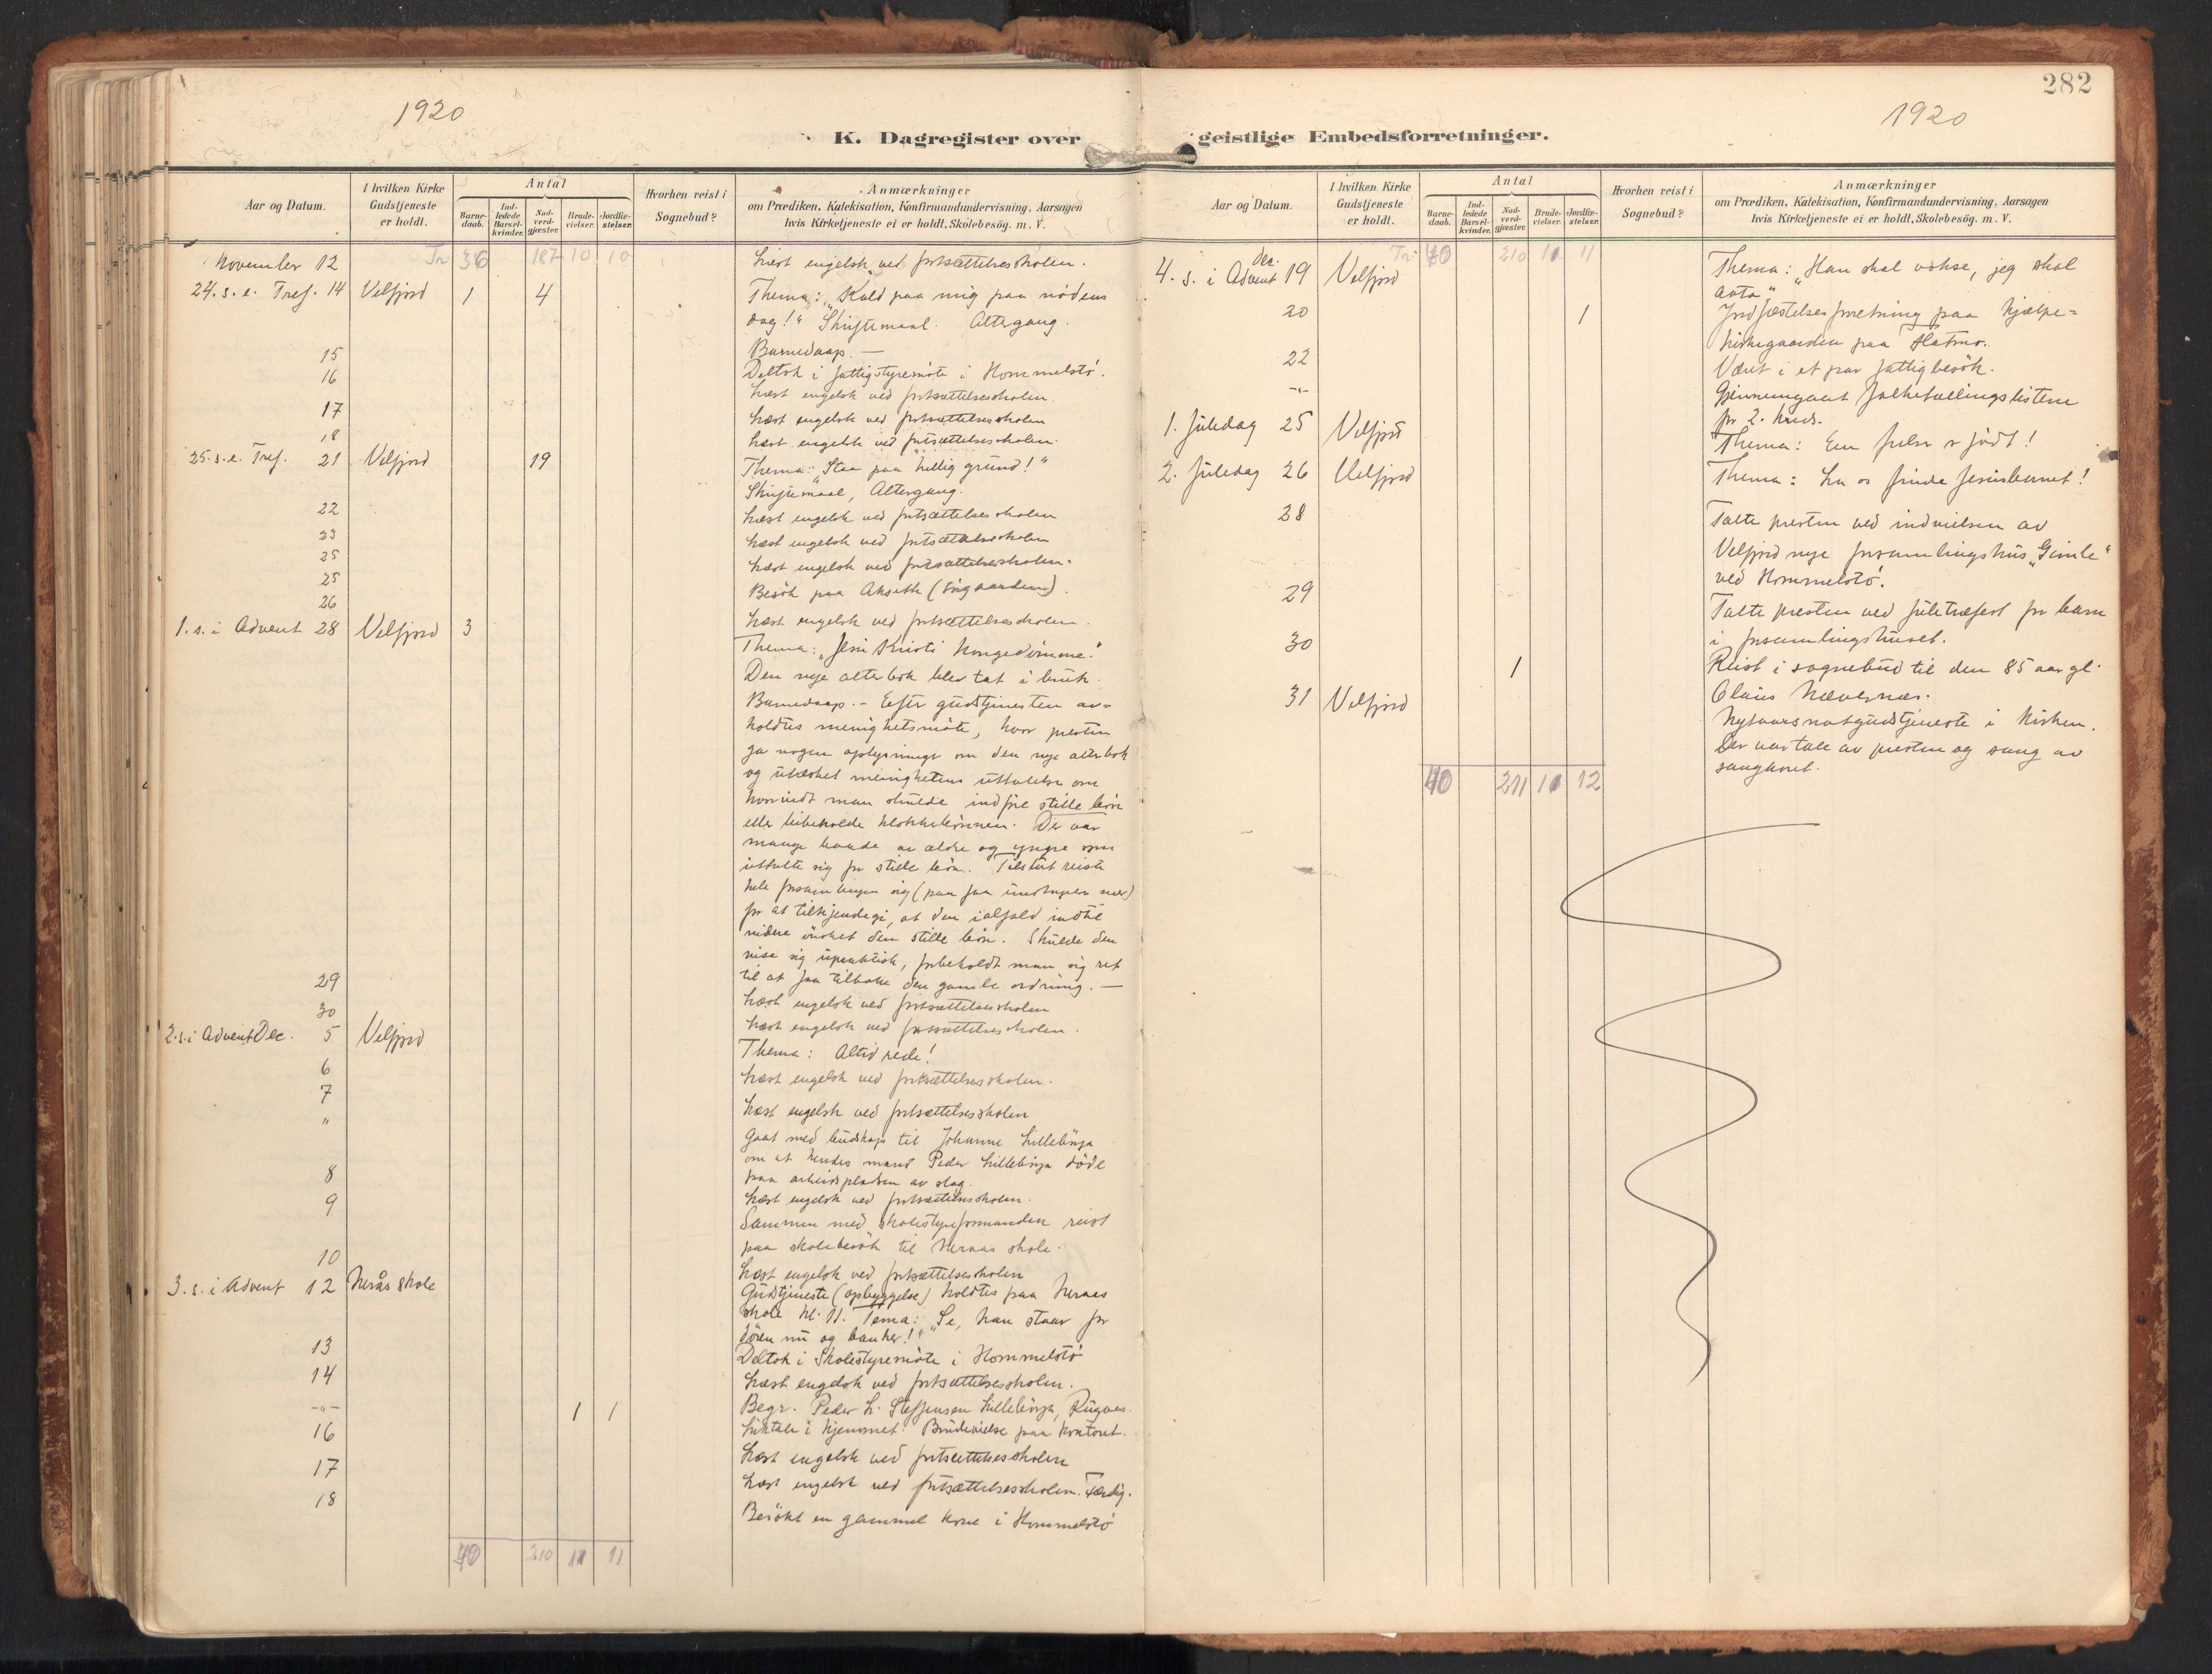 1920
K. Dagregister over
Aar og Datum.
I hvilken Kirke Gudstjeneste er holdt.
Antal
Barnedaab.
Indledede Barselkvinder.
Nadverdgjæster.
Brudevielser.
Jordfæstelser.
Hvorhen reist i Sognebud?
Anmærkninger
om Prædiken, Katekisation, Konfirmandundervisning, Aarsagen
hvis Kirketjeneste ei er holdt, Skolebesøg. m. V.
November 12 Tr. 36 187 10 10 Læst engelsk ved fortsættelsesskolen.
24. s. e. Tref. 14 Velfjord 1 4 Thema: "Kald paa mig paa nödens
dag!" Skriftemaal. Altergang.
Barnedaap. —
15 Deltok i fattigstyremöte i Hommelstö.
16 Læst engelsk ved fortsættelsesskolen.
17 Læst engelsk ved fortsættelsesskolen
18 Læst engelsk ved fortsættelsesskolen.
25. s. e. Tref. 21 Velfjord 19 Thema: "Staa paa hellig grund!"
Skriftemaal, Altergang.
22 Læst engelsk ved fortsættelsesskolen
23 Læst engelsk ved fortsættelsesskolen
25 Læst engelsk ved fortsættelsesskolen.
25 Besök paa Akseth
26 Læst engelsk ved fortsættelsesskolen.
1. s. i Advent 28 Velfjord 3
Thema: "Jesu Kristi kongedömme."
Den nye alterbok blev tat i bruk.
Barnedaap. - Efter gudstjenesten av=
holdtes menighetsmöte, hvor presten
ga nogen oplysninger om den nye alterbok
og utæsket menighetens uttalelse om
hvorvidt man skulde indföre stille bön
eller bibeholde klokkebönnen. Der var
mange baade av ældre og yngre som
uttalte sig for stille bön. Tilslut reiste
hele forsamlingen sig (paa faa undtagelser nær)
for at tilkjendegi, at den ialfald indtil
videre önsket den stille bön. Skulde den
vise sig upraktisk, forbeholdt man sig ret
til at faa tilbake den gamle ordning. —
29 Læst engelsk ved fortsættelsesskolen
30 Læst engelsk ved fortsættelsesskolen.
2. s. i Advent Dec. 5 Velfjord
Thema: Altid rede!
6 Læst engelsk ved fortsættelsesskolen.
7 Læst engelsk ved fortsættelsesskolen
" Gaat med budskap til Johanne Lillebörja
om at hendes mand Peder Lillebörja döde
paa arbeidspladsen av slag.
8 Læst engelsk ved fortsættelsesskolen.
9 Sammen med skolestyreformanden reist
paa skolebesök til Neraas skole.
10 Læst engelsk ved fortsættelsesskolen
3. s. i Advent 12 Nerås skole Gudstjeneste (opbyggelse) holdtes paa Neraas
skole kl. 11. Tema: "Se, han staar for
dören nu og banker!"
13 Deltok i Skolestyremöte i Hommelstö
14 Læst engelsk ved fortsættelsesskolen.
-"- 1 1 Begr. Peder L. Steffensen Lillebörja,
Liktale i hjemmet. Brudevielse paa kontoret.
16 Læst engelsk ved fortsættelsesskolen
17 Læst engelsk ved fortsættelsesskolen. Færdig.
18 Besökt en gammel kone i Hommelstö
40 210 11 11
282
1920
geistlige Embedsforretninger.
Aar og Datum.
I hvilken Kirke Gudstjeneste er holdt.
Antal
Barnedaab.
Indledede Barselkvinder.
Nadverdgjæster.
Brudevielser.
Jordfæstelser.
Hvorhen reist i Sognebud?
Anmærkninger
om Prædiken, Katekisation, Konfirmandundervisning, Aarsagen
hvis Kirketjeneste ei er holdt, Skolebesøg. m. V.
Tr. 40 210 11 11
4. s. i Advent Dec. 19 Velfjord Thema: "Han skal vokse, jeg skal
avta"
20 1 Jordfæstelsesforretning paa hjælpe=
kirkegaarden paa Flatmo.
22 Været i et par fattigbesök.
-"- Gjennemgaat folketællingslistene
for 2. kreds.
1. Juledag 25 Velfjord Thema: En frelser er födt!
2. Juledag 26 Velfjord Thema: La os finde Jesusbarnet!
28 Talte presten ved indvielsen av
Velfjord nye forsamlingshus "Gimle"
ved Hommelstö.
29 Talte presten ved juletræfest for barn
i forsamlingshuset.
30 1 Reist i sognebud til den 85 aar gl.
Claus Nævernes.
31 Velfjord Nytaarsnatgudstjeneste i kirken.
Der var tale av presten og sang av
sangkoret.
40 211 11 12